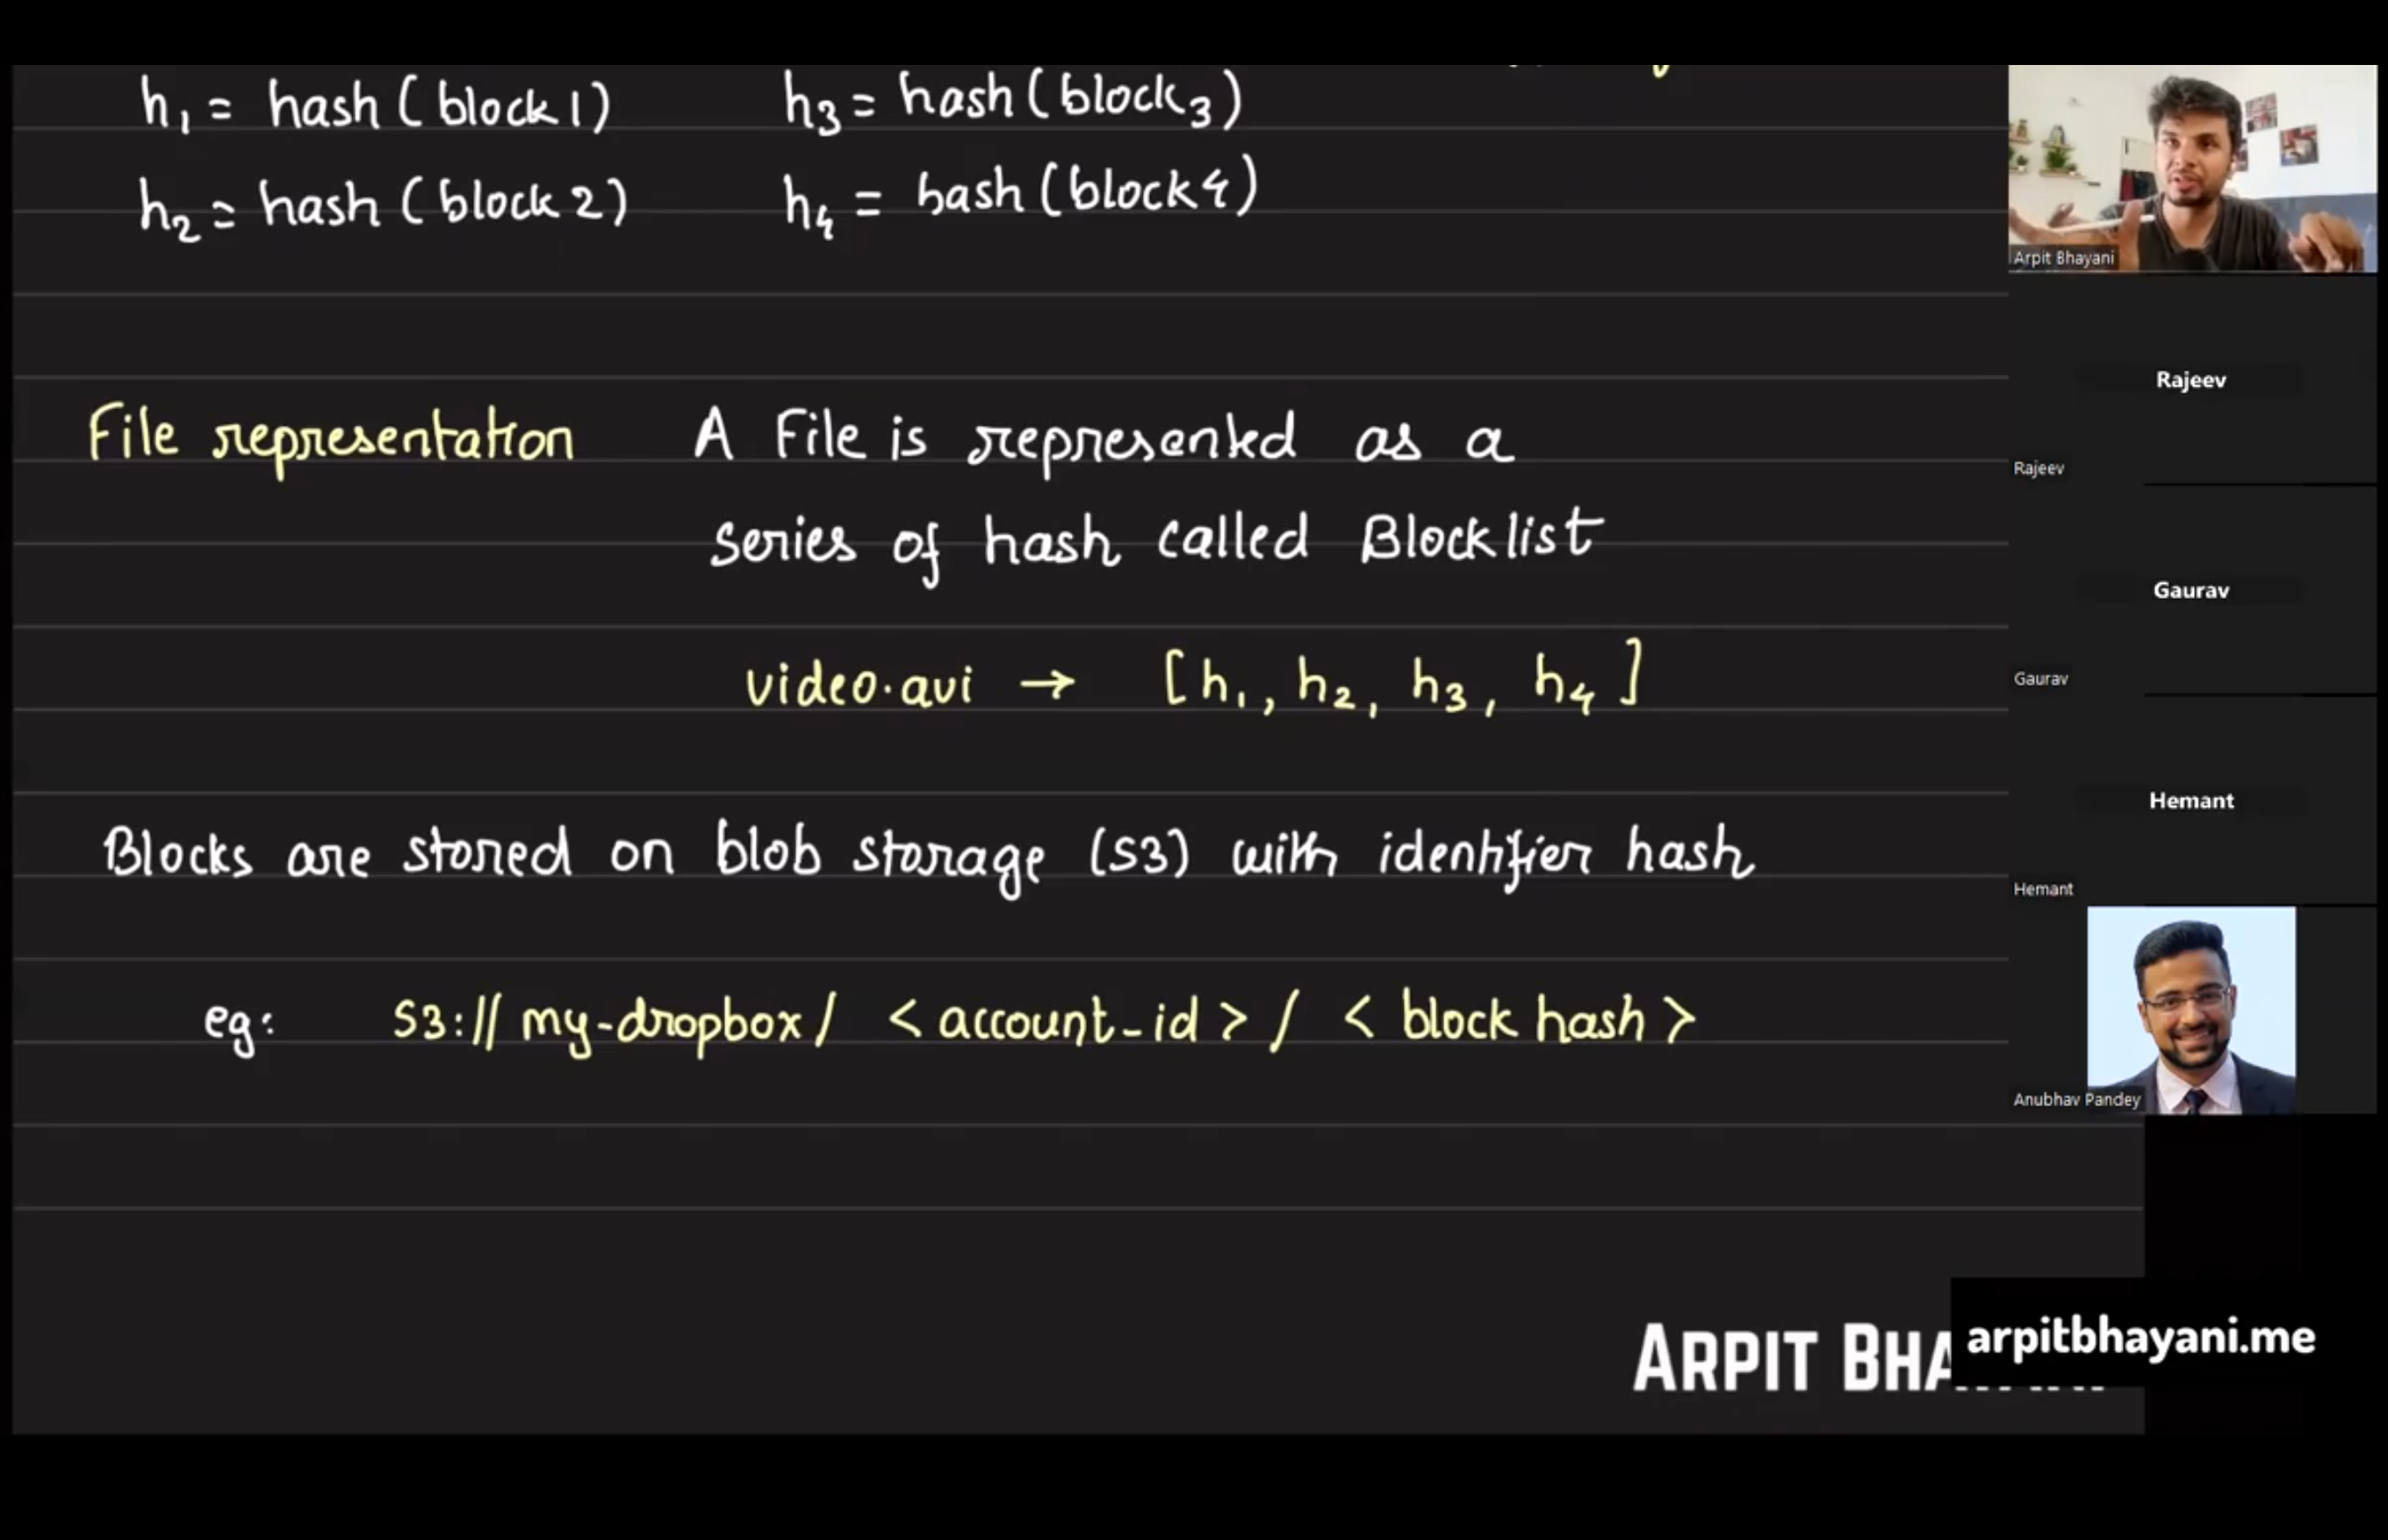 h1 = hash (block 1)
h3 = hash (block3)
h2 = hash (block 2)
h4 = hash (block4)
File representation
A File is represented as a
series of hash called Blocklist
video.avi → [h1, h2, h3, h4]
Blocks are stored on blob storage (S3) with identifier hash
eg: S3:// my-dropbox / < account_id > / < block hash >
Arpit Bhayani
Rajeev
Rajeev
Gaurav
Gaurav
Hemant
Hemant
Anubhav Pandey
ARPIT BHA
arpitbhayani.me